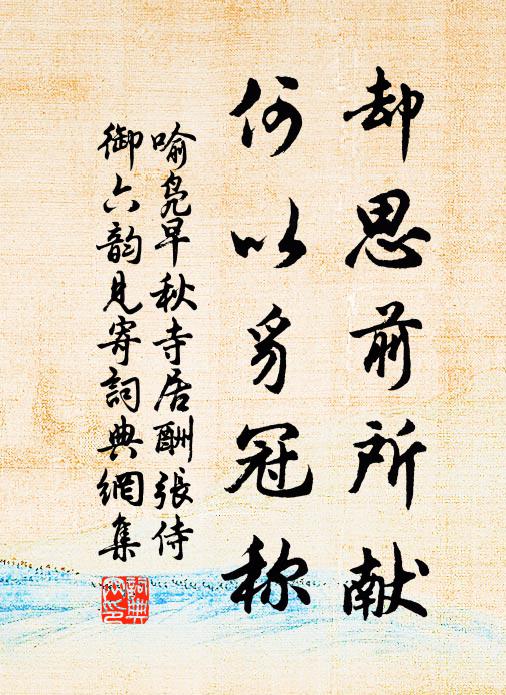 却思前所献
何以豸冠称
喻凫早秋寺居酬張侍
御六韵見寄詞典網集